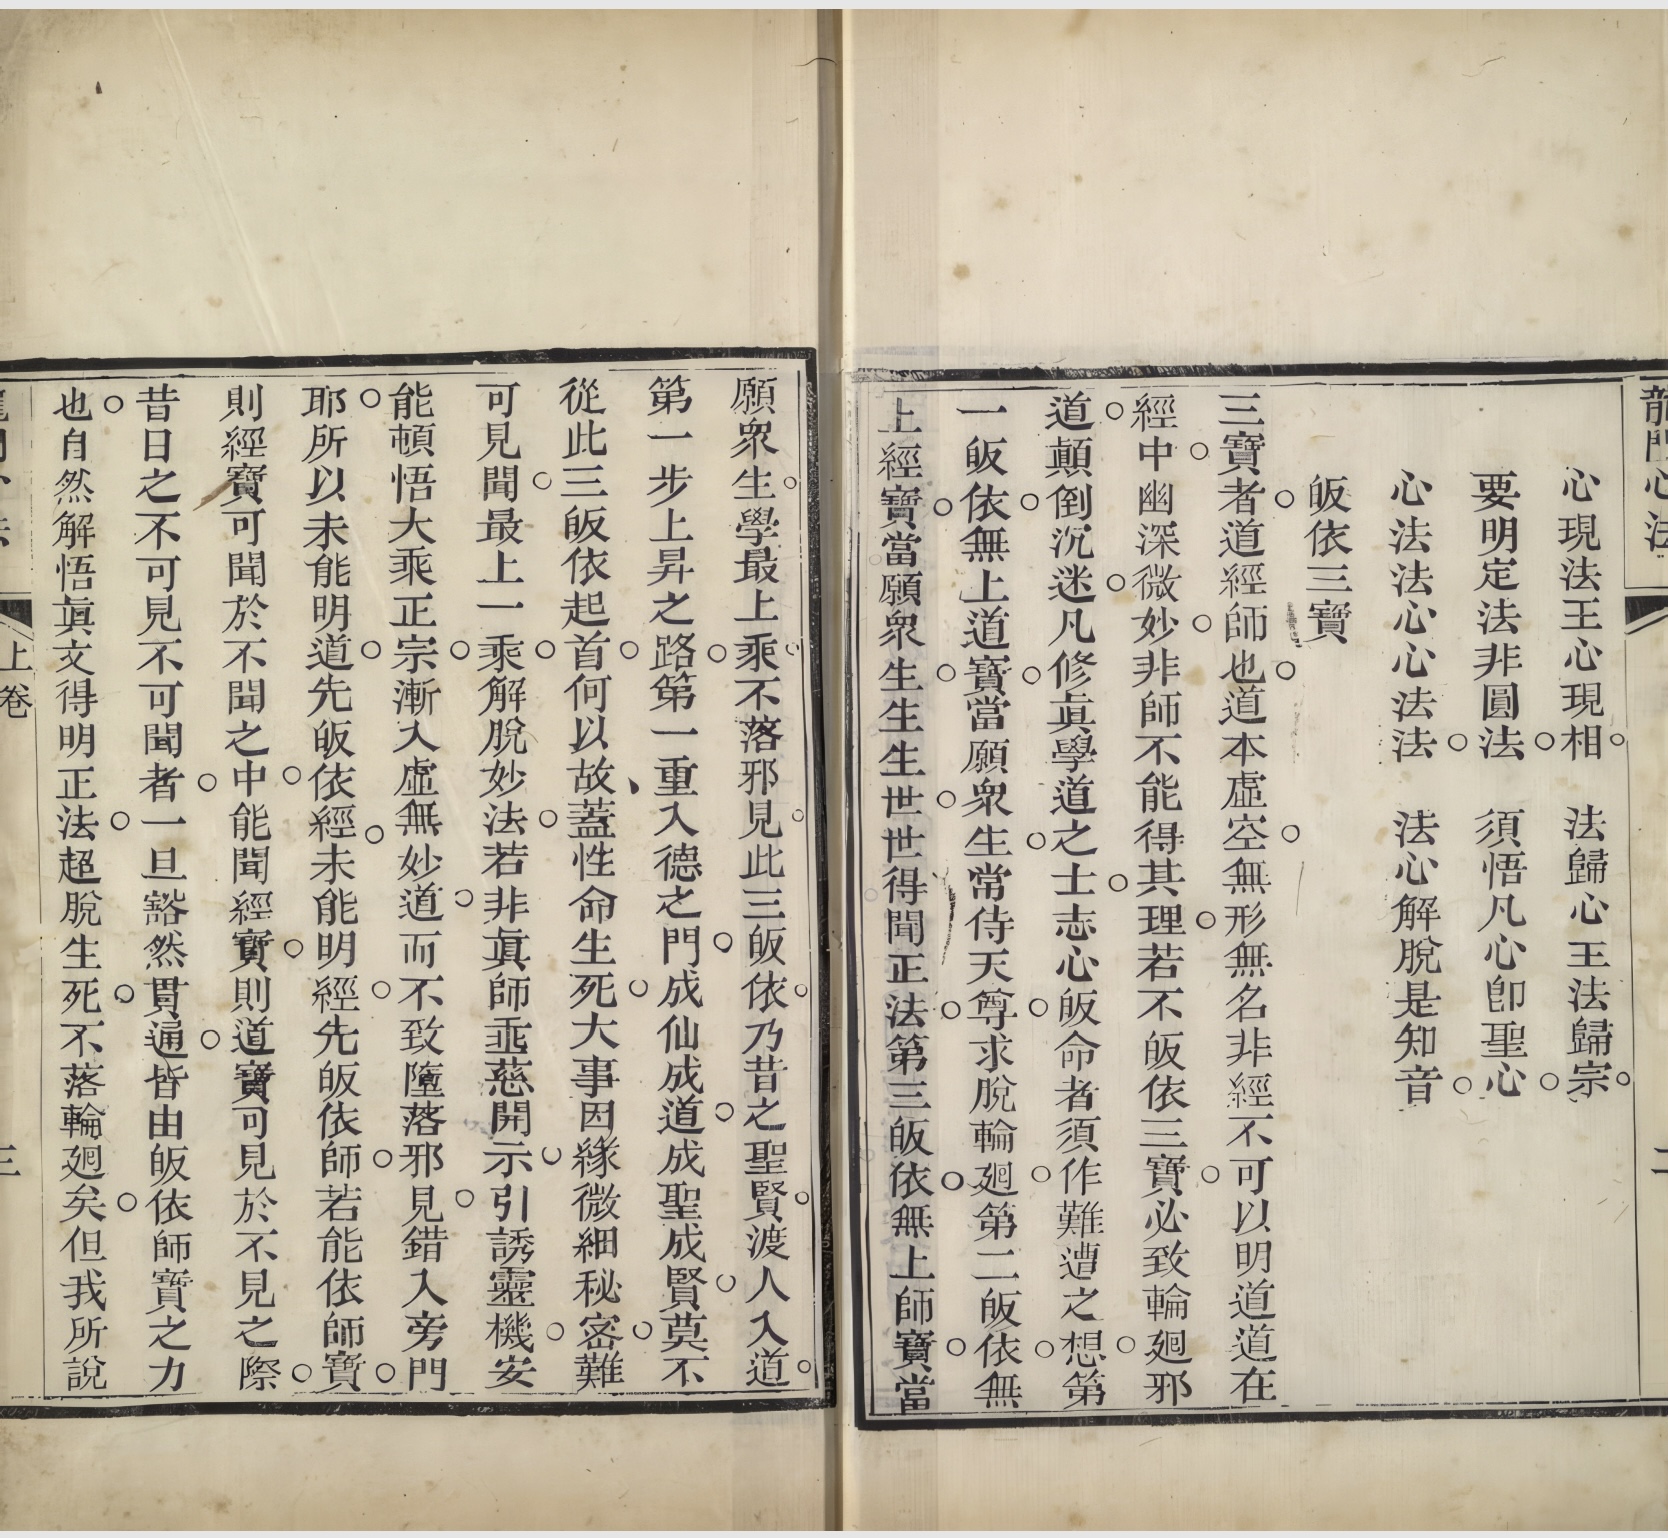 龍門心法
二
心現法王心現相　法歸心王法歸宗
要明定法非圓法　須悟凡心卽聖心
心法法心心法法　法心解脫是知音
皈依三寶
三寶者道經師也道本虛空無形無名非經不可以明道道在
經中幽深微妙非師不能得其理若不皈依三寶必致輪廻邪
道顛倒沉迷凡修眞學道之士志心皈命者須作難遭之想第
一皈依無上道寶當願衆生常侍天尊求脫輪廻第二皈依無
上經寶當願衆生生生世世得聞正法第三皈依無上師寶當
願衆生學最上乘不落邪見此三皈依乃昔之聖賢渡人入道
第一步上昇之路第一重入德之門成仙成道成聖成賢莫不
從此三皈依起首何以故蓋性命生死大事因緣微細秘密難
可見聞最上一乘解脫妙法若非眞師垂慈開示引誘靈機安
能頓悟大乘正宗漸入虛無妙道而不致墮落邪見錯入旁門
耶所以未能明道先皈依經未能明經先皈依師若能依師寶
則經寶可聞於不聞之中能聞經寶則道寶可見於不見之際
昔日之不可見不可聞者一旦豁然貫通皆由皈依師寶之力
也自然解悟眞文得明正法超脫生死不落輪廻矣但我所說
上卷
三